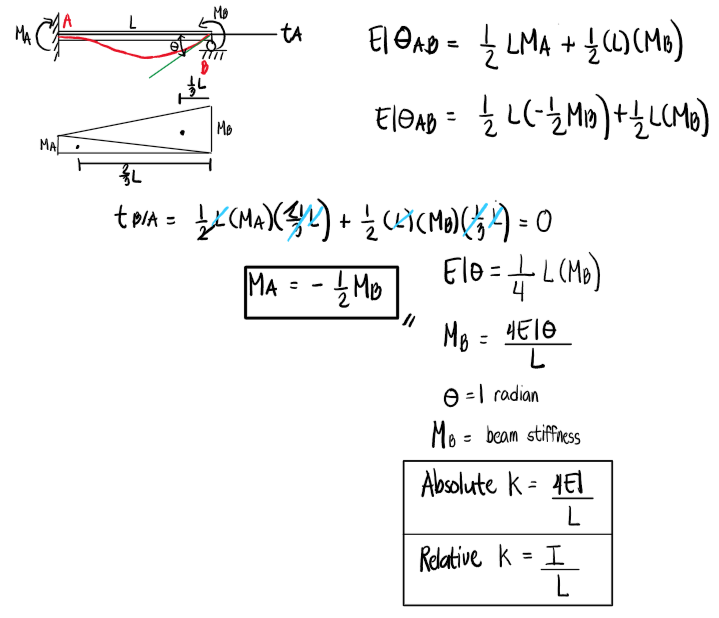 A L MB
MA θ tA
B
1/3 L
MA MB
2/3 L
EIθAB = 1/2 LMA + 1/2 (L)(MB)
EIθAB = 1/2 L(-1/2 MB) + 1/2 L(MB)
t B/A = 1/2 L(MA)(2/3 L) + 1/2 (L)(MB)(1/3 L) = 0
MA = - 1/2 MB
EIθ = 1/4 L(MB)
MB = 4EIθ/L
θ = 1 radian
MB = beam stiffness
Absolute K = 4EI/L
Relative K = I/L